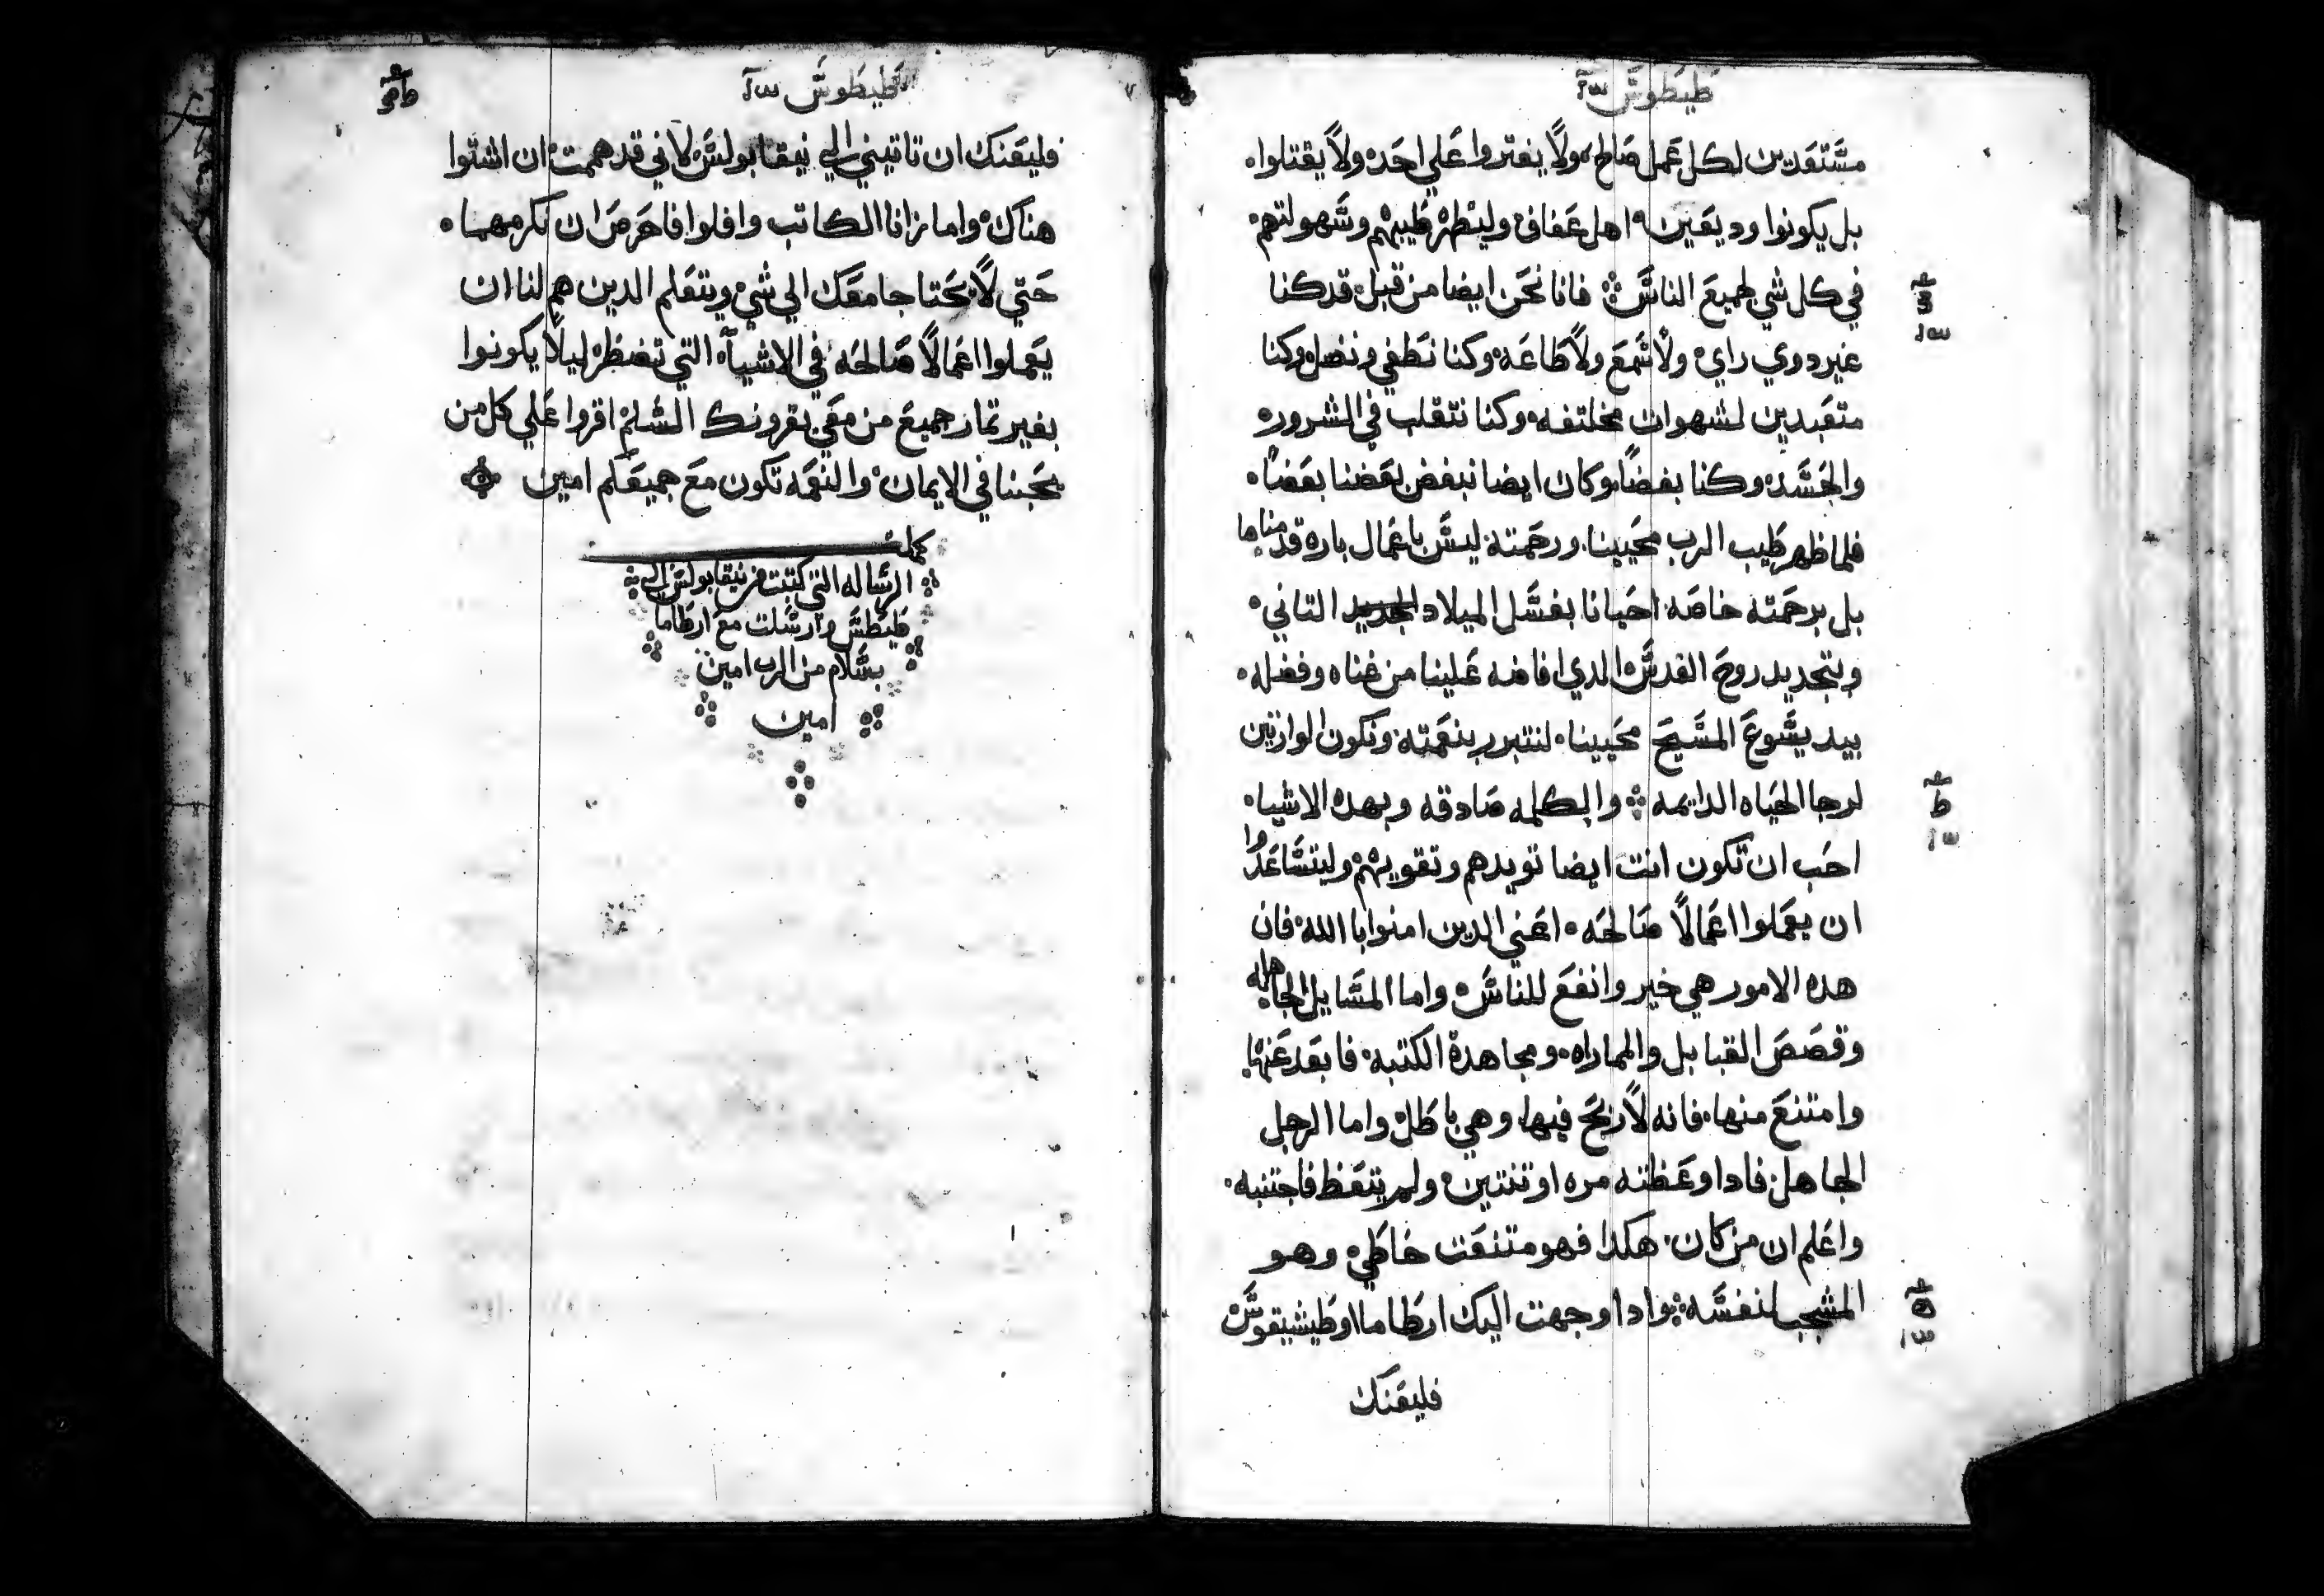 طيطوش
مستعدين لكل عمل صالح ولا يفتروا علي احد ولا يقتلوا
بل يكونوا وديعين اهل عفاف وليظهر طيبهم وسهولتهم
في كل شي لجميع الناس فانا نحن ايضا من قبل قد كنا
غير دوي راي ولا سمع ولا طاعه وكنا نطغي ونضل وكنا
متعبدين لشهوات مختلفه وكنا نتقلب في الشرور
والحسد وكنا بغضا وكان ايضا نبغض بعضنا بعضا
فلما ظهر طيب الرب محيينا ورحمته ليس باعمال باره قدمناها
بل برحمته خاصه احيانا بغسل الميلاد الجديد التاني
وبتجديد روح القدس الدي افاضه علينا من غناه وفضله
بيد يسوع المسيح محيينا لنتبرر بنعمته ونكون الوارتين
لرجا الحياه الدايمه والكلمه صادقه وبهده الاشيا
احب ان تكون انت ايضا تويدهم وتقويهم وليتساعدوا
ان يعملوا اعمالا صالحه اعني الدين امنوا باالله فان
هده الامور هي خير وانفع للناس واما المسايل الجاهله
وقصص القبايل والمماراه ومجاهدة الكتبه فابعد عنها
وامتنع منها فانه لا ربح فيها وهي باطل واما الرجل
الجاهل فادا وعظته مره او تنتين ولم يتعظ فاجتنبه
واعلم ان من كان هكدا فهو متنعت خاطي وهو
المشجب لنفسه وادا وجهت اليك ارطاما او طيشيقوس
فليعنك
طيطوش
فليعنك ان تاتيني الي نيقابولس لاني قد هممت ان اشتوا
هناك واما زانا الكاتب وافلوا فاحرص ان تكرمهما
حتي لا يحتاجا معك الي شي ويتعلم الدين هم لنا ان
يعملوا اعمالا صالحه في الاشيآ التي تضطر ليلا يكونوا
بغير تمار جميع من معي يقرونك السلم اقروا علي كل من
يحبنا في الايمان والنعمه تكون مع جميعكم امين
كملت
الرساله التي كتبت من نيقابولس الي
طيطس وارسلت مع ارطاما
بسلام من الرب امين
امين